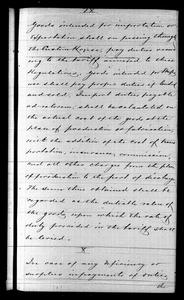 IX
Goods intended for importation or
Exportation shall on passing through
the Custom House, pay duties accord-
ing to the tariff annexed to these
Regulations. Goods intended for
use shall pay duties
and
ad valorem, shall be calculated on
the actual cost of the goods at the
place of production or fabrication,
with the addition of the cost of trans-
portation, insurance, commission,
and all other charges from the place
of production to the port of discharge.
The sum thus obtained shall be
regarded as the dutiable value of
the goods, upon which the rate of
duty provided in the tariff shall
be levied.
X
In case of any deficiency or
payments of duties,
the